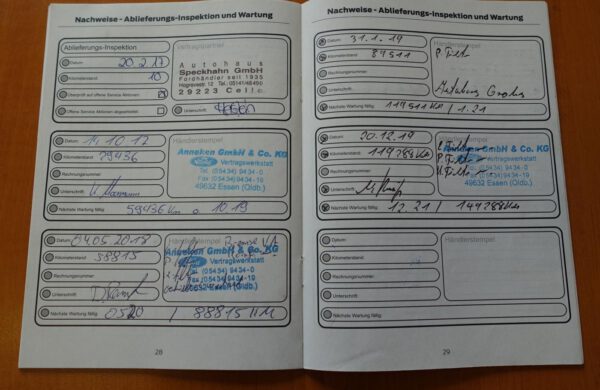 Nachweise - Ablieferungs-Inspektion und Wartung
Ablieferungs-Inspektion
Datum 20.2.17
Kilometerstand 10
Überprüft auf offene Service Aktionen
Offene Service Aktionen abgearbeitet
Autohaus
Speckhahn GmbH
Fordhändler seit 1935
29223 Celle
Unterschrift
Datum 14.10.17
Kilometerstand 29436
Rechnungsnummer
Unterschrift
Nächste Wartung fällig 59436 Km o 10 19
Händlerstempel
Anneken GmbH & Co. KG
Ford Vertragswerkstatt
Tel. (05434) 9434-0
Fax (05434) 9434-19
49632 Essen (Oldb.)
Datum 04.05.2018
Kilometerstand 58815
Rechnungsnummer
Unterschrift
Nächste Wartung fällig 0520 / 88815 KM
Anneken GmbH & Co. KG
Vertragswerkstatt
Tel. (05434) 9434-0
Fax (05434) 9434-19
49632 Essen (Oldb.)
28
Nachweise - Ablieferungs-Inspektion und Wartung
Datum 31.1.19
Kilometerstand 89511
Rechnungsnummer
Unterschrift
Nächste Wartung fällig 119511 KM 1.21
Händlerstempel
Datum 20.12.19
Kilometerstand 119288 Km
Rechnungsnummer
Unterschrift
Nächste Wartung fällig 12.21 / 149288 Km
Händlerstempel
Anneken GmbH & Co. KG
Vertragswerkstatt
Tel. (05434) 9434-0
Fax (05434) 9434-19
49632 Essen (Oldb.)
Datum
Kilometerstand
Rechnungsnummer
Unterschrift
Nächste Wartung fällig
Händlerstempel
29